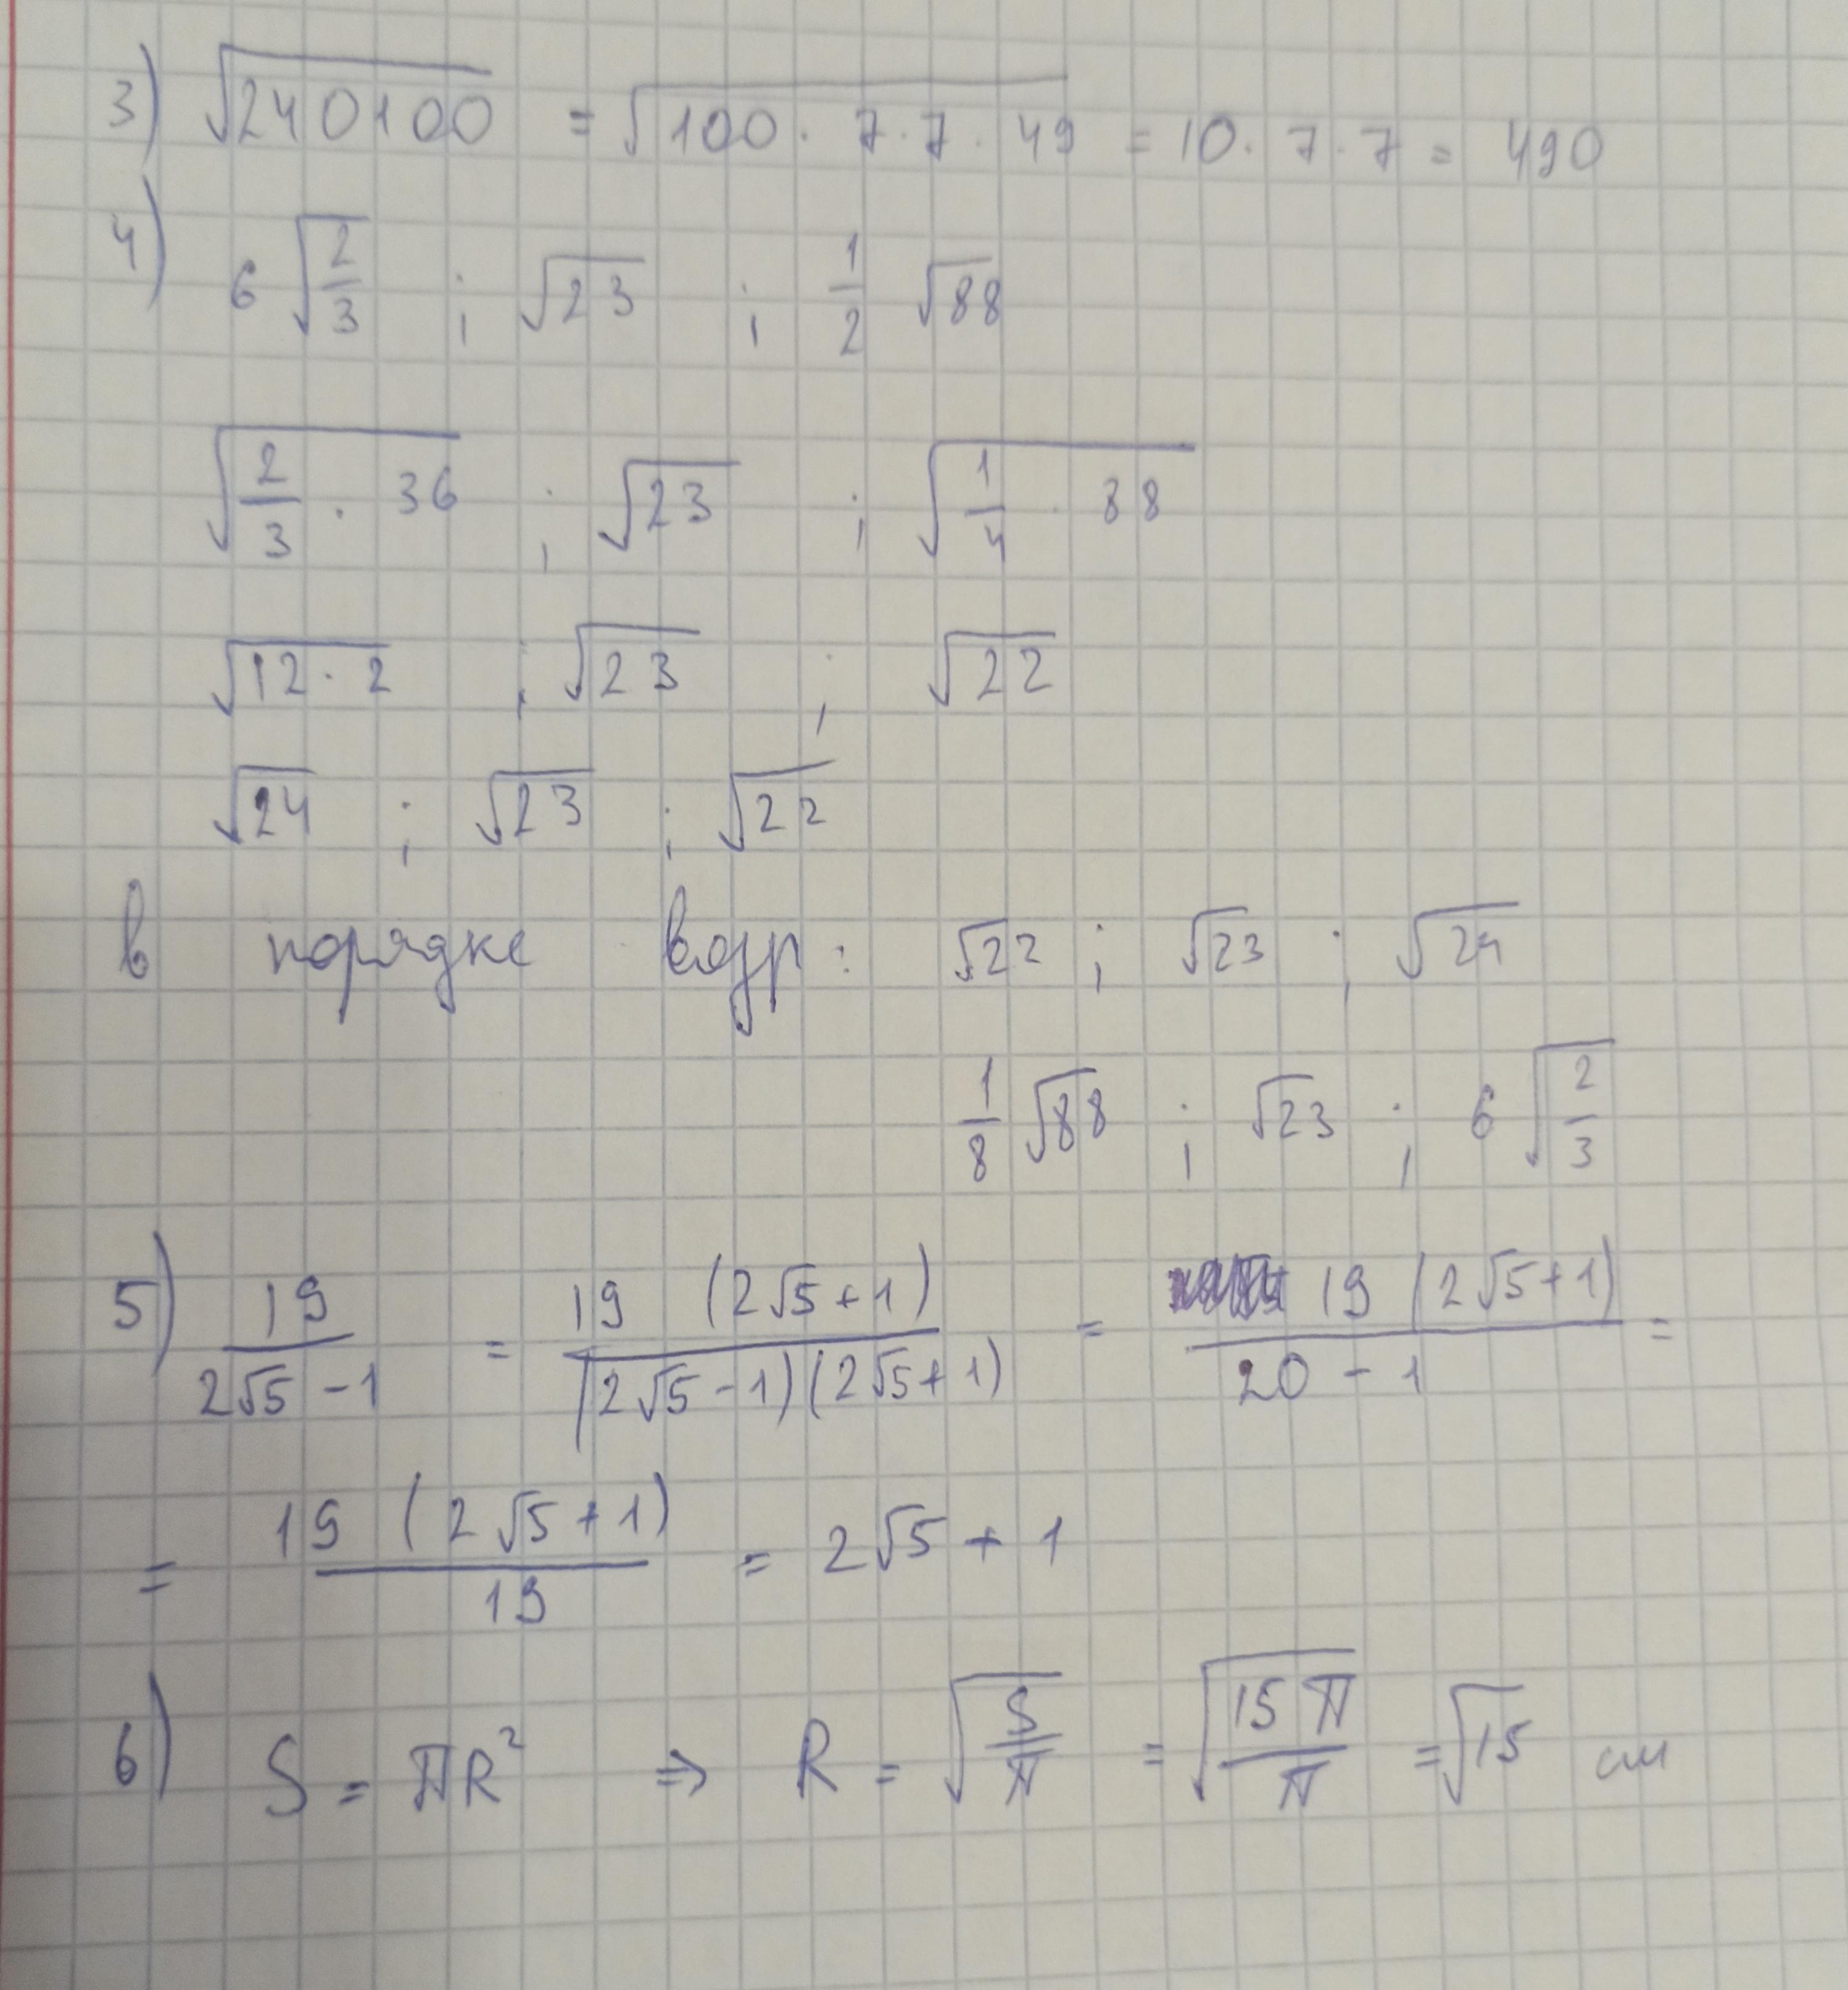 3) √240100 = √100 · 7 · 7 · 49 = 10 · 7 · 7 = 490
4) 6 √2/3 ; √23 ; 1/2 √88
√2/3 · 36 ; √23 ; √1/4 · 88
√12 · 2 ; √23 ; √22
√24 ; √23 ; √22
в порядке возр: √22 ; √23 ; √24
1/8 √88 ; √23 ; 6 √2/3
5) 19/(2√5 - 1) = 19 (2√5 + 1)/((2√5 - 1)(2√5 + 1)) = 19 (2√5 + 1)/(20 - 1) =
= 19 (2√5 + 1)/19 = 2√5 + 1
6) S = πR² ⇒ R = √S/π = √15π/π = √15 см